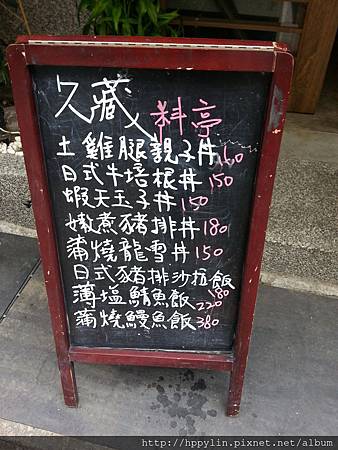 久藏
料亭
土雞腿親子丼150
日式牛培根丼150
蝦天玉子丼150
嫩煮豬排丼180
蒲燒龍雪丼150
日式豬排沙拉飯180
薄塩鯖魚飯220
蒲燒鰻魚飯380
http://hppylin.pixnet.net/album